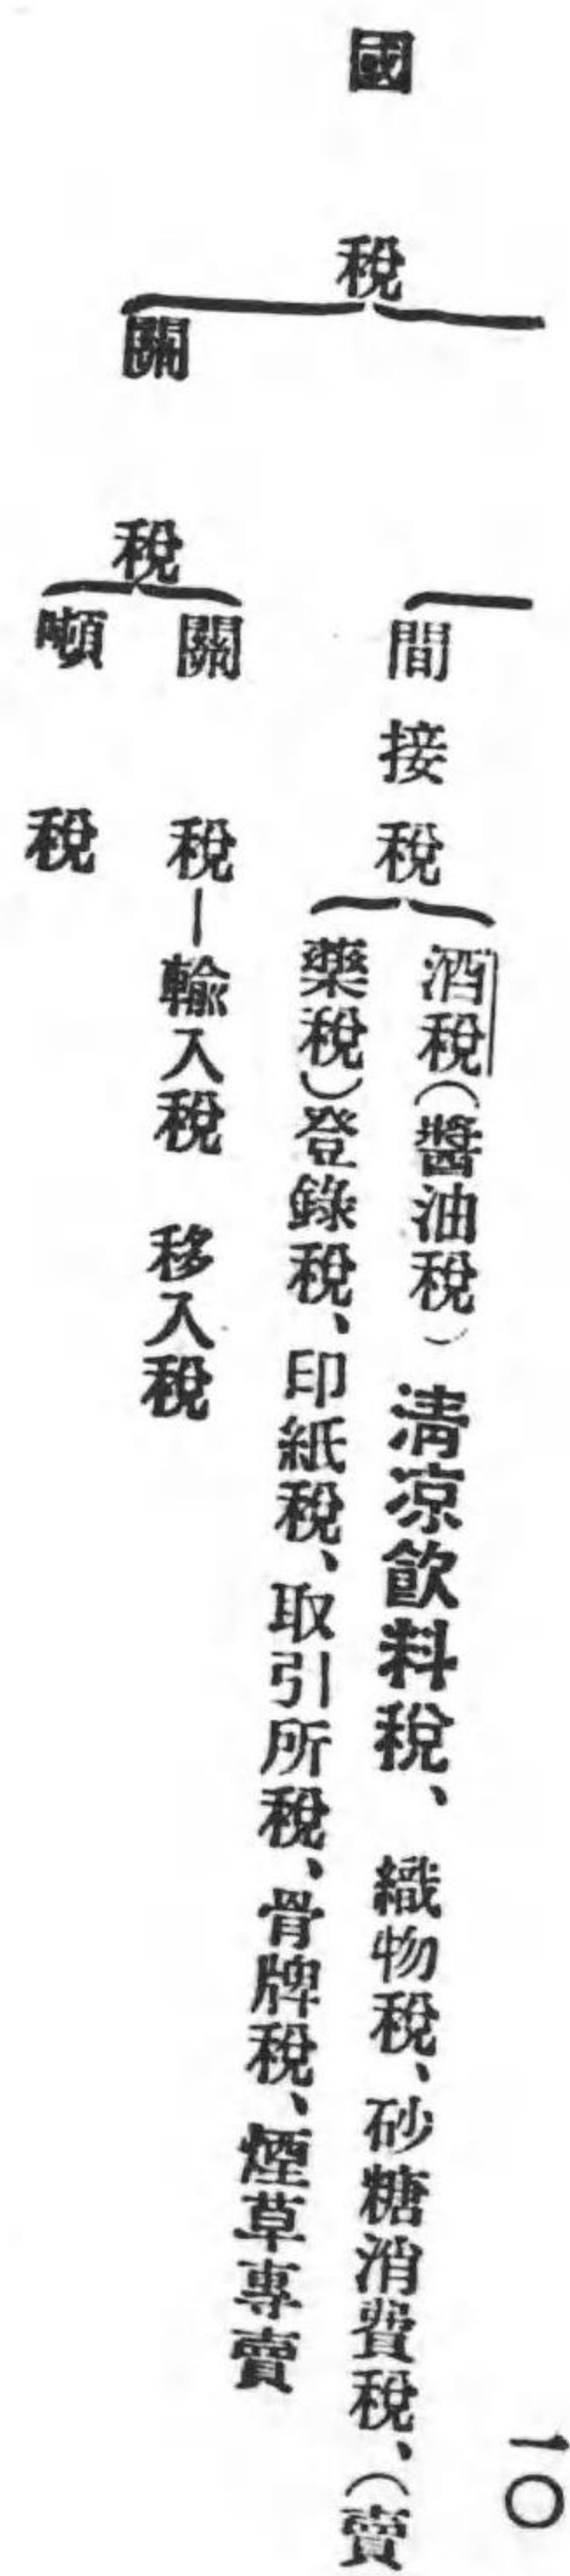 一〇
國稅
間接稅
酒稅(醬油稅)清凉飮料稅、織物稅、砂糖消費稅、(賣
藥稅)登錄稅、印紙稅、取引所稅、骨牌稅、煙草專賣
關稅
關稅―輸入稅 移入稅
噸稅